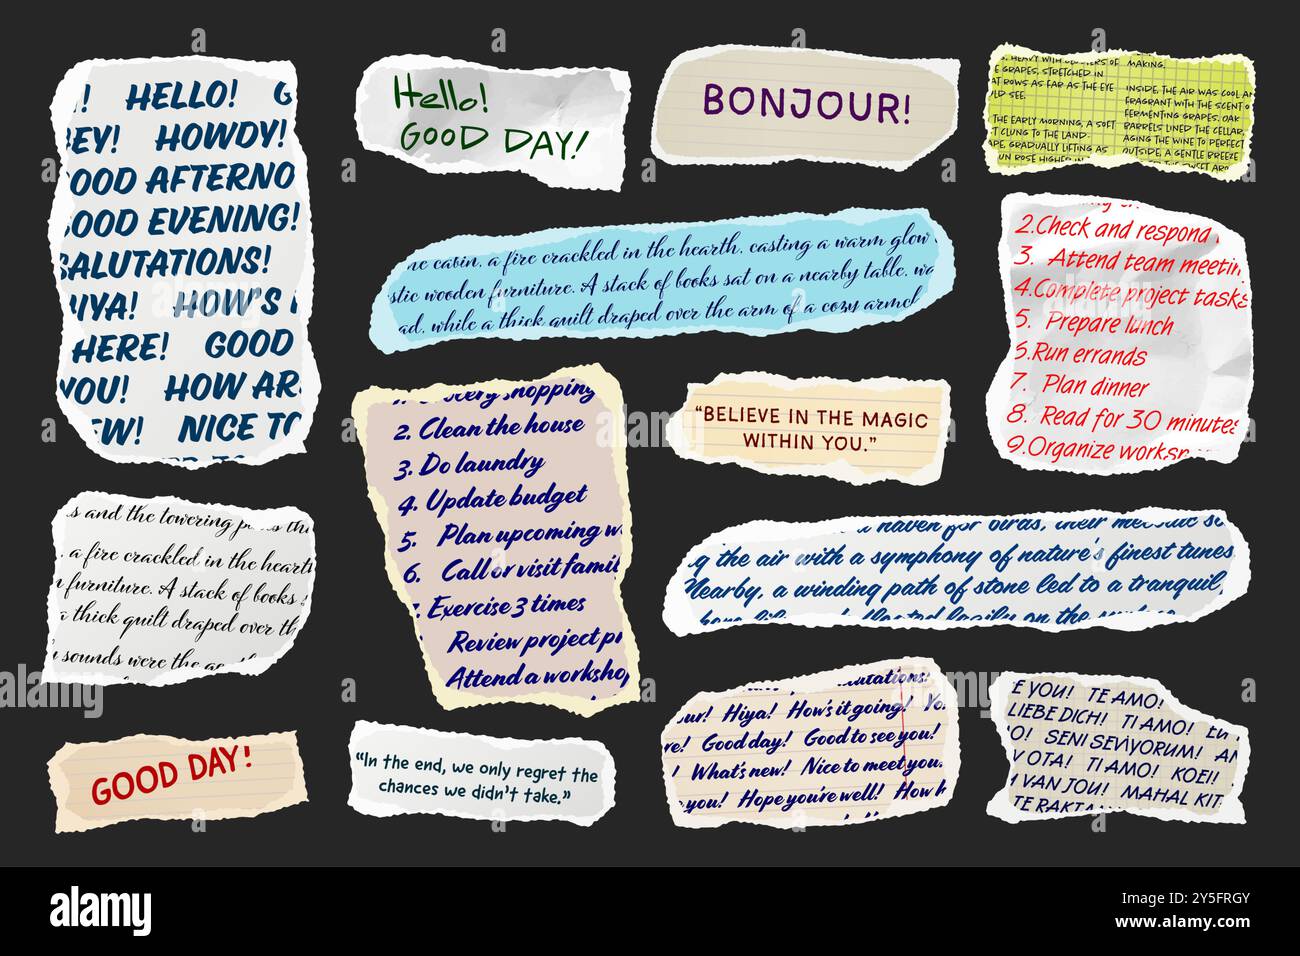 ! HELLO! G
EY! HOWDY!
OOD AFTERNO
OOD EVENING!
SALUTATIONS!
IYA! HOW'S
HERE! GOOD
YOU! HOW AR
EW! NICE TO
Hello!
GOOD DAY!
BONJOUR!
E GRAPES, STRETCHED IN
AT ROWS AS FAR AS THE EYE
LD SEE.
THE EARLY MORNING, A SOFT
T CLUNG TO THE LAND:
APE, GRADUALLY LIFTING AS
UN ROSE HIGHER IN
MAKING.
INSIDE, THE AIR WAS COOL AN
FRAGRANT WITH THE SCENT O
FERMENTING GRAPES. OAK
BARRELS LINED THE CELLAR,
AGING THE WINE TO PERFECT
OUTSIDE, A GENTLE BREEZE
he cabin, a fire crackled in the hearth, casting a warm glow
stic wooden furniture. A stack of books sat on a nearby table, wa
ad, while a thick quilt draped over the arm of a cozy armch
2.Check and respond
3. Attend team meetin
4.Complete project tasks
5. Prepare lunch
6.Run errands
7. Plan dinner
8. Read for 30 minutes
9.Organize worksp
1. Grocery shopping
2. Clean the house
3. Do laundry
4. Update budget
5. Plan upcoming w
6. Call or visit famil
7. Exercise 3 times
Review project pr
Attend a workshop
"BELIEVE IN THE MAGIC
WITHIN YOU."
s and the towering
a fire crackled in the hearth
furniture. A stack of books
a thick quilt draped over th
sounds were the
haven for birds, their melodic so
g the air with a symphony of nature's finest tunes
Nearby, a winding path of stone led to a tranquil,
on the surface
GOOD DAY!
"In the end, we only regret the
chances we didn't take."
our! Hiya! How's it going! Yo
re! Good day! Good to see you!
! What's new! Nice to meet you.
you! Hope you're well! How h
E YOU! TE AMO!
LIEBE DICH! TI AMO! EU
O! SENI SEVIYORUM! AN
OTA! TI AMO! KOEI!
VAN JOU! MAHAL KIT
TE RAKTA
alamy
Image ID: 2Y5FRGY
www.alamy.com